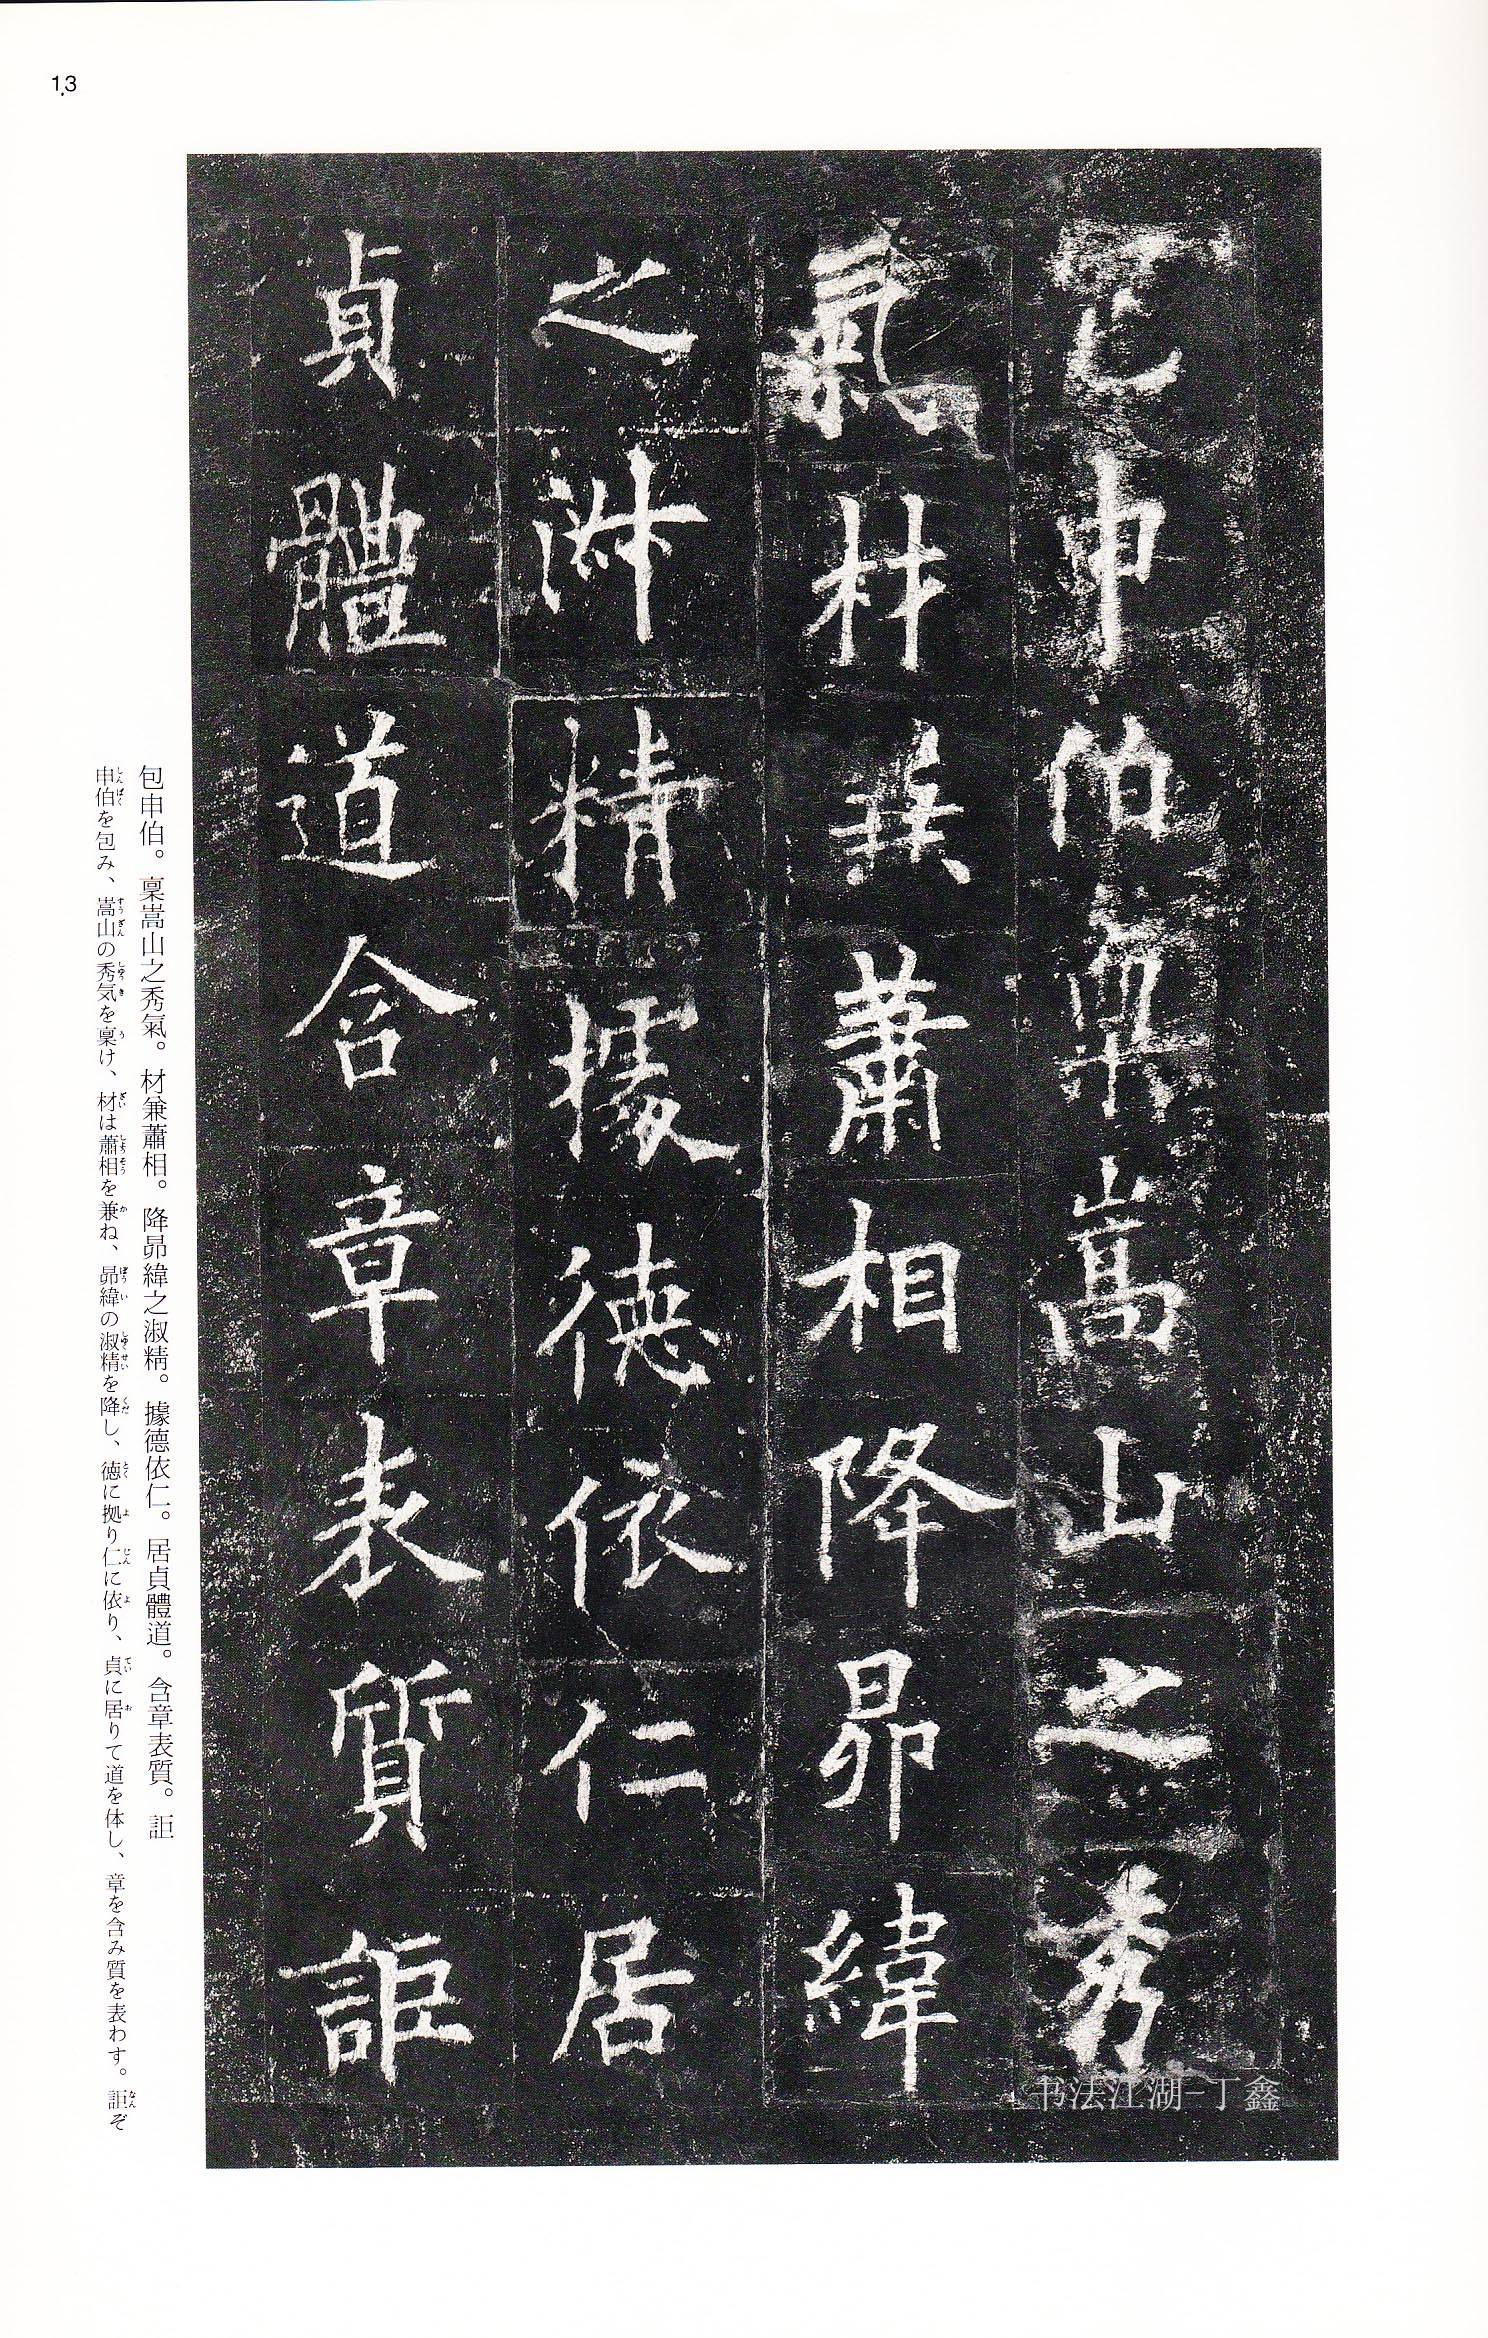 13
包申伯稟嵩山之秀
氣材兼蕭相降昴緯
之淋精據德依仁居
貞體道含章表質詎
包申伯。稟嵩山之秀氣。材兼蕭相。降昴緯之淑精。據德依仁。居貞體道。含章表質。詎
申伯を包み、嵩山の秀気を稟け、材は蕭相を兼ね、昴緯の淑精を降し、徳に拠り仁に依り、貞に居りて道を体し、章を含み質を表わす。詎ぞ
书法江湖-丁鑫